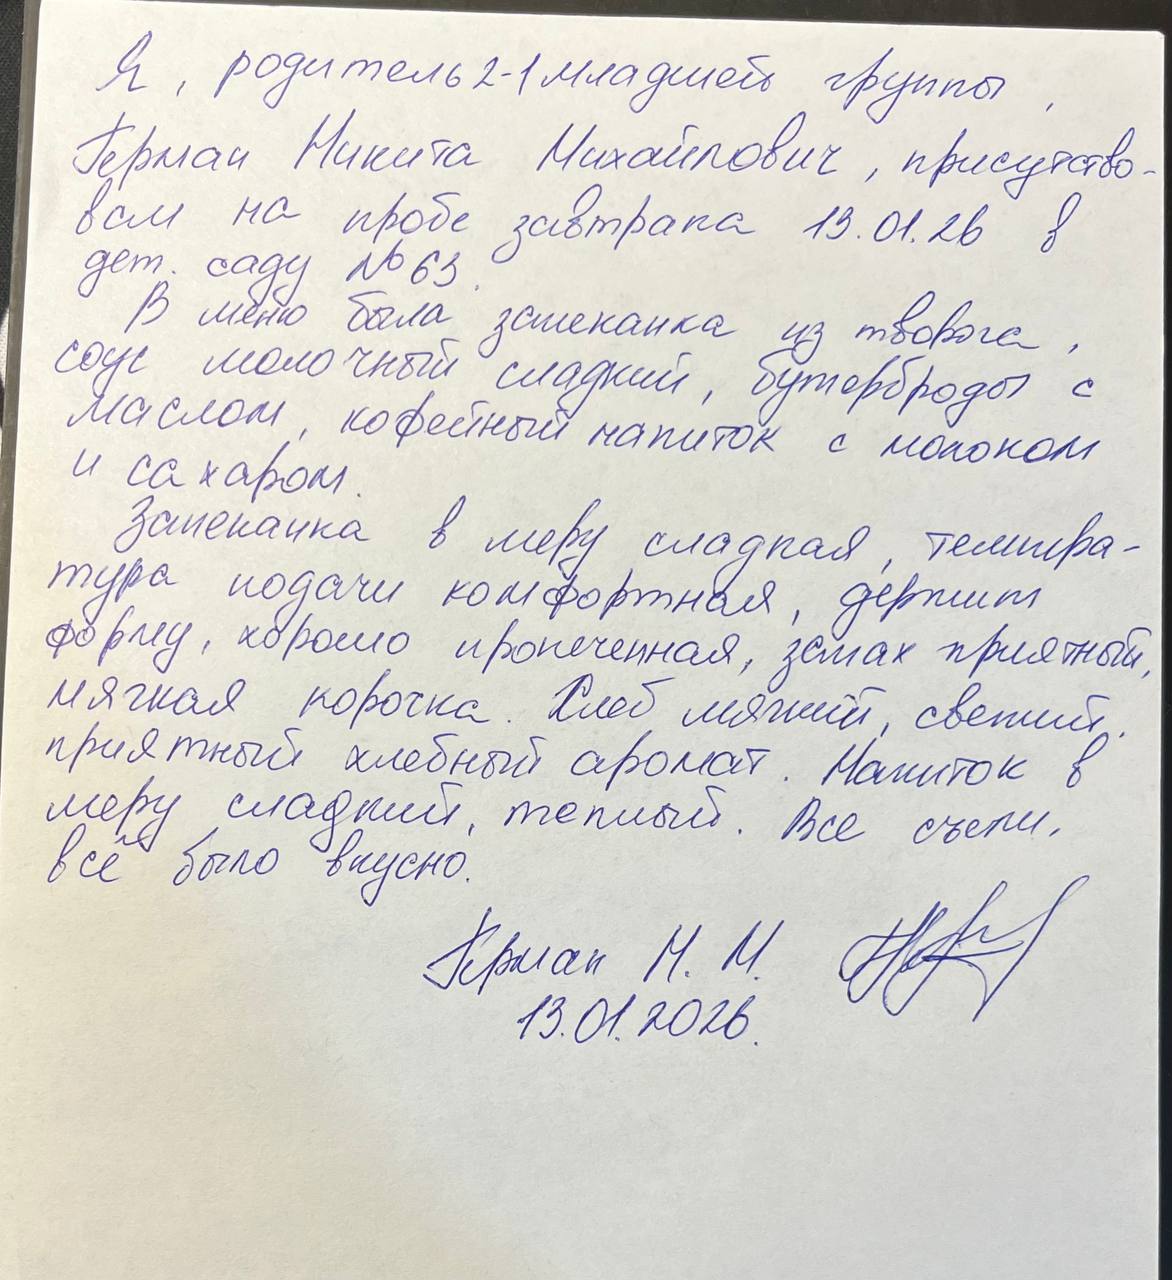 Я, родитель 2-1 младшей группы,
Герман Никита Михайлович, присутство-
вал на пробе завтрака 13.01.26 в
дет. саду № 63.
В меню была запеканка из творога,
соус молочный сладкий, бутерброды с
маслом, кофейный напиток с молоком
и сахаром.
Запеканка в меру сладкая, темпера-
тура подачи комфортная, держит
форму, хорошо пропеченная, запах приятный,
мягкая корочка. Хлеб мягкий, свежий,
приятный хлебный аромат. Напиток в
меру сладкий, теплый. Все съели,
всё было вкусно.
Герман Н. М.
13.01.2026.